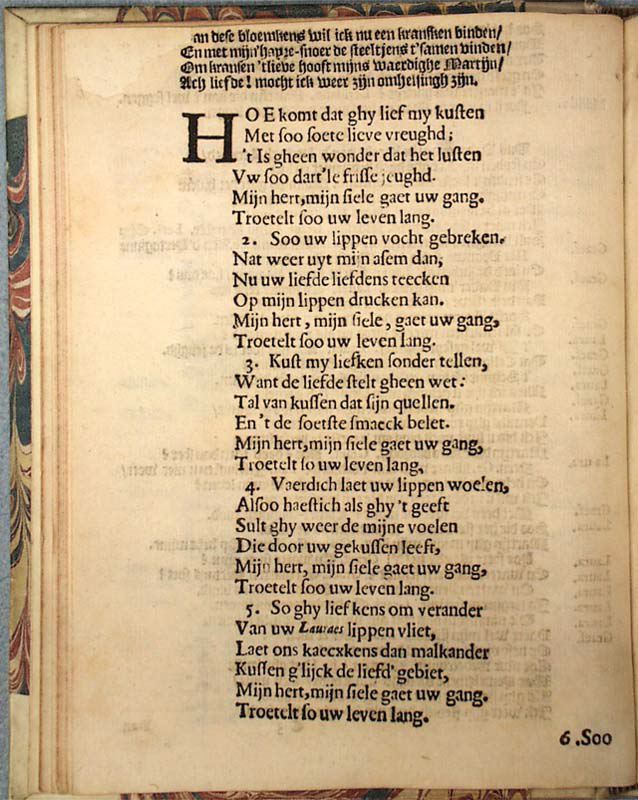 an dese bloemkens wil ick nu een kransken binden/
En met mijn hayre-snoer de steeltjens t'samen vinden/
Om kransen 'tlieve hooft mijns waerdighe Martijn/
Ach liefde! mocht ick weer zijn omhelsingh zijn.
HOE komt dat ghy lief my kusten
Met soo soete lieve vreughd;
't Is gheen wonder dat het lusten
Vw soo dart'le frisse jeughd.
Mijn hert, mijn siele gaet uw gang.
Troetelt soo uw leven lang.
2. Soo uw lippen vocht gebreken.
Nat weer uyt mijn asem dan,
Nu uw liefde liefdens teecken
Op mijn lippen drucken kan.
Mijn hert, mijn siele, gaet uw gang,
Troetelt soo uw leven lang.
3. Kust my liefken sonder tellen,
Want de liefde stelt gheen wet:
Tal van kussen dat sijn quellen.
En 't de soetste smaeck belet.
Mijn hert, mijn siele gaet uw gang,
Troetelt so uw leven lang,
4. Vaerdich laet uw lippen woelen,
Alsoo haestich als ghy 't geeft
Sult ghy weer de mijne voelen
Die door uw gekussen leeft,
Mijn hert, mijn siele gaet uw gang,
Troetelt soo uw leven lang.
5. So ghy liefkens om verander
Van uw Lauraes lippen vliet,
Laet ons kaecxkens dan malkander
Kussen g'lijck de liefd' gebiet,
Mijn hert, mijn siele gaet uw gang.
Troetelt so uw leven lang.
6. Soo